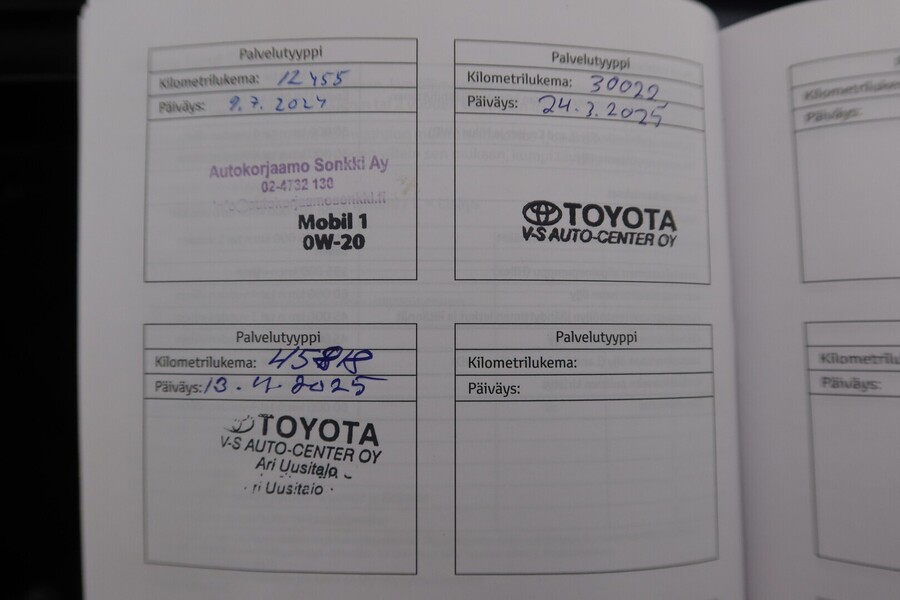 Palvelutyyppi
Kilometrilukema: 12455
Päiväys: 9.7.2024
Autokorjaamo Sonkki Ay
02-4732 130
Mobil 1
0W-20
Palvelutyyppi
Kilometrilukema: 30022
Päiväys: 24.3.2025
TOYOTA
V-S AUTO-CENTER OY
Palvelutyyppi
Kilometrilukema: 45818
Päiväys: 13.11.2025
TOYOTA
V-S AUTO-CENTER OY
Ari Uusitalo
ri Uusitalo
Palvelutyyppi
Kilometrilukema:
Päiväys:
Kilometrilu
Päiväys: